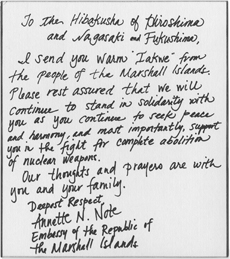 To the Hibakusha of Hiroshima
and Nagasaki and Fukushima,
I send you warm "Iakwe" from
the people of the Marshall Islands.
Please rest assured that we will
continue to stand in solidarity with
you as you continue to seek peace
and harmony, and most importantly, support
you in the fight for complete abolition
of nuclear weapons.
Our thoughts and prayers are with
you and your family.
Deepest Respect,
Annette N. Note
Embassy of the Republic of
the Marshall Islands